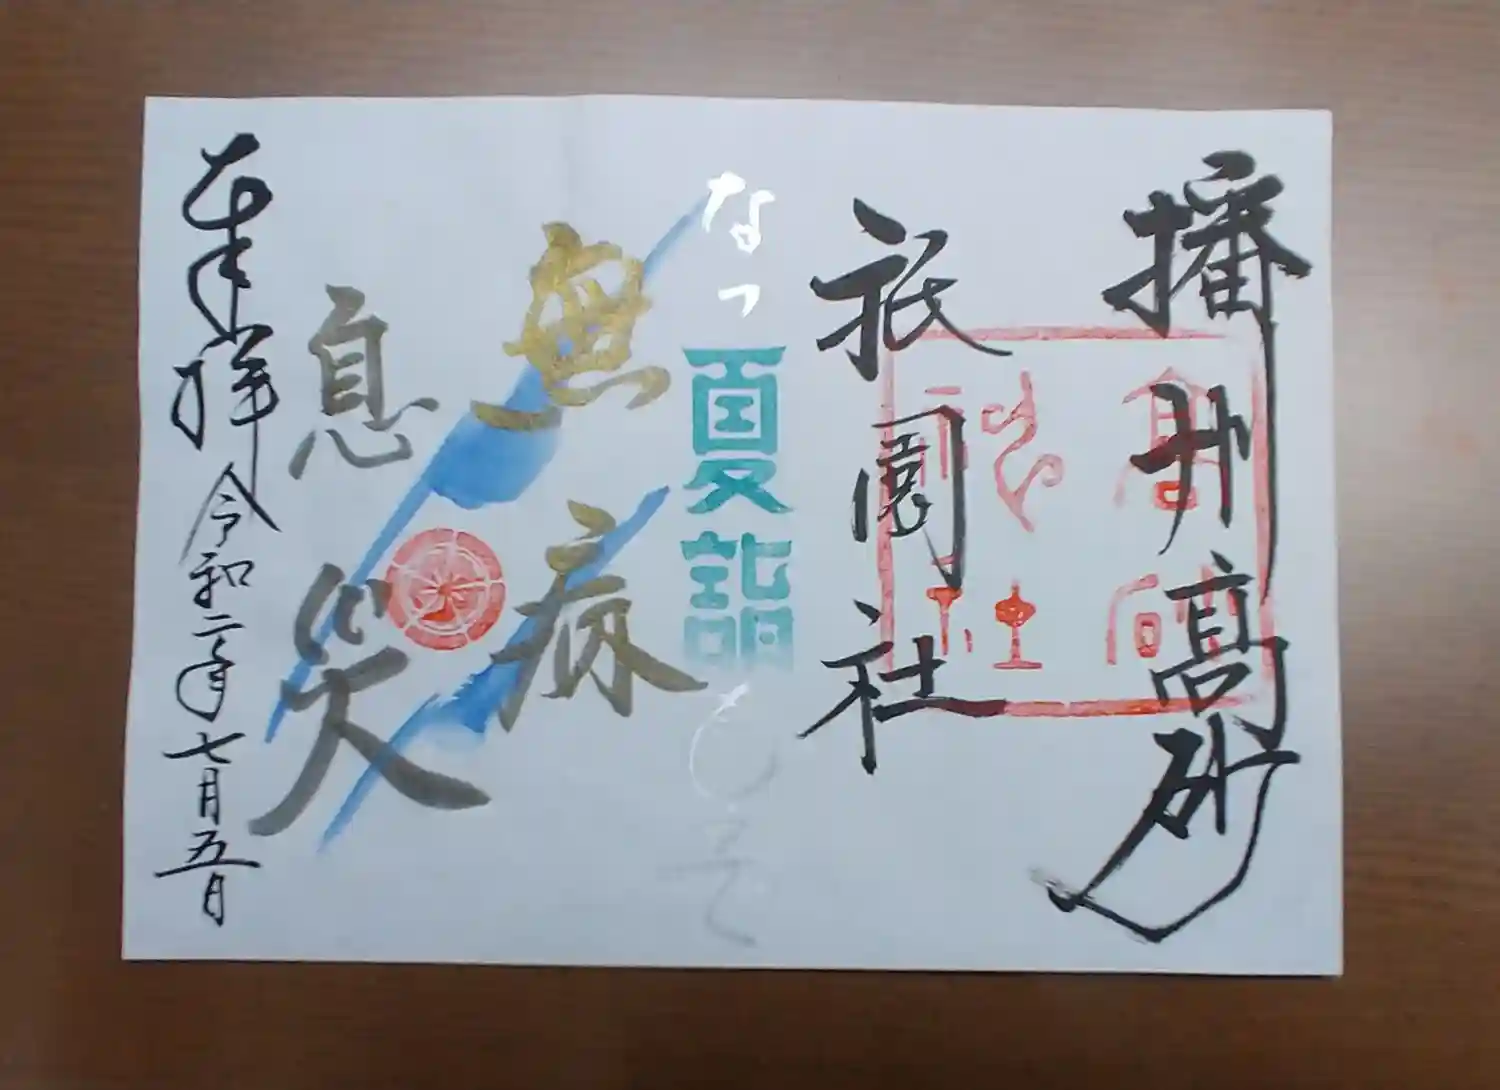 播州高砂
祇園社
なつ
夏詣
もうで
無病
息災
奉拝
令和二年七月五日